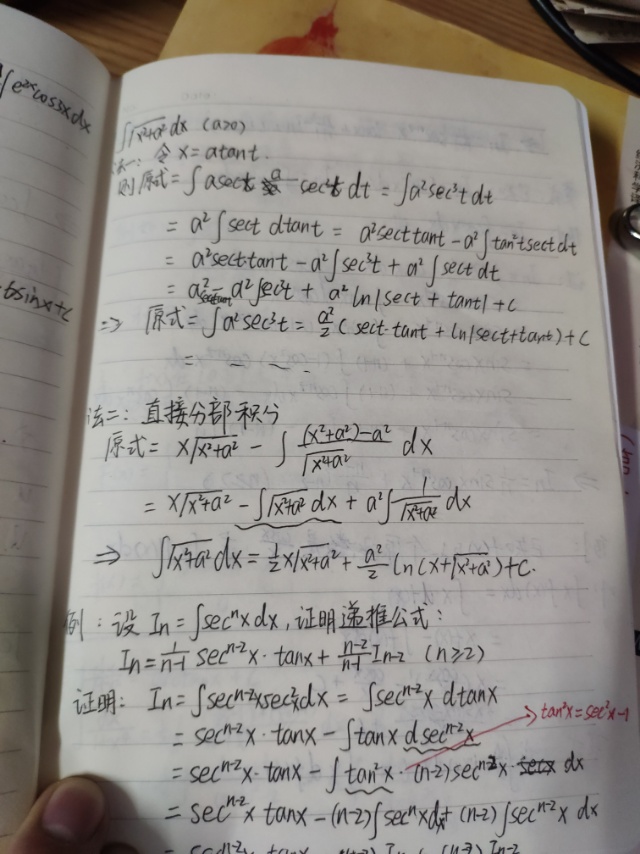 ∫e^{2x}cos3xdx
6sinx+c
∫√(x²+a²) dx (a>0)
法一: 令 x=atant.
则原式=∫asect· a sec²t dt=∫a²sec³t dt
=a²∫sect dtant = a²sect tant-a²∫tan²t sect dt
=a²sect·tant-a²∫sec³t+a²∫sect dt
=a²sect·tant-a²∫sec³t+a²ln|sect+tant|+c
⇒ 原式=∫a²sec³t=a²/2(sect·tant+ln|sect+tant)+c
= ...
法二: 直接分部积分
原式= x√(x²+a²) - ∫ ((x²+a²)-a²)/√(x²+a²) dx
= x√(x²+a²) - ∫√(x²+a²) dx + a²∫ 1/√(x²+a²) dx
⇒ ∫√(x²+a²) dx = 1/2 x√(x²+a²) + a²/2 ln(x+√(x²+a²))+c.
例: 设 In=∫secⁿx dx, 证明递推公式:
In= 1/(n-1) sec^{n-2}x·tanx+ (n-2)/(n-1) I_{n-2} (n≥2)
证明: In=∫sec^{n-2}x sec²x dx = ∫sec^{n-2}x dtanx
= sec^{n-2}x·tanx-∫tanx dsec^{n-2}x
tan²x=sec²x-1
= sec^{n-2}x·tanx-∫tan²x·(n-2)sec^{n-2}x· dx
= sec^{n-2}x tanx-(n-2)∫secⁿx dx+(n-2)∫sec^{n-2}x dx